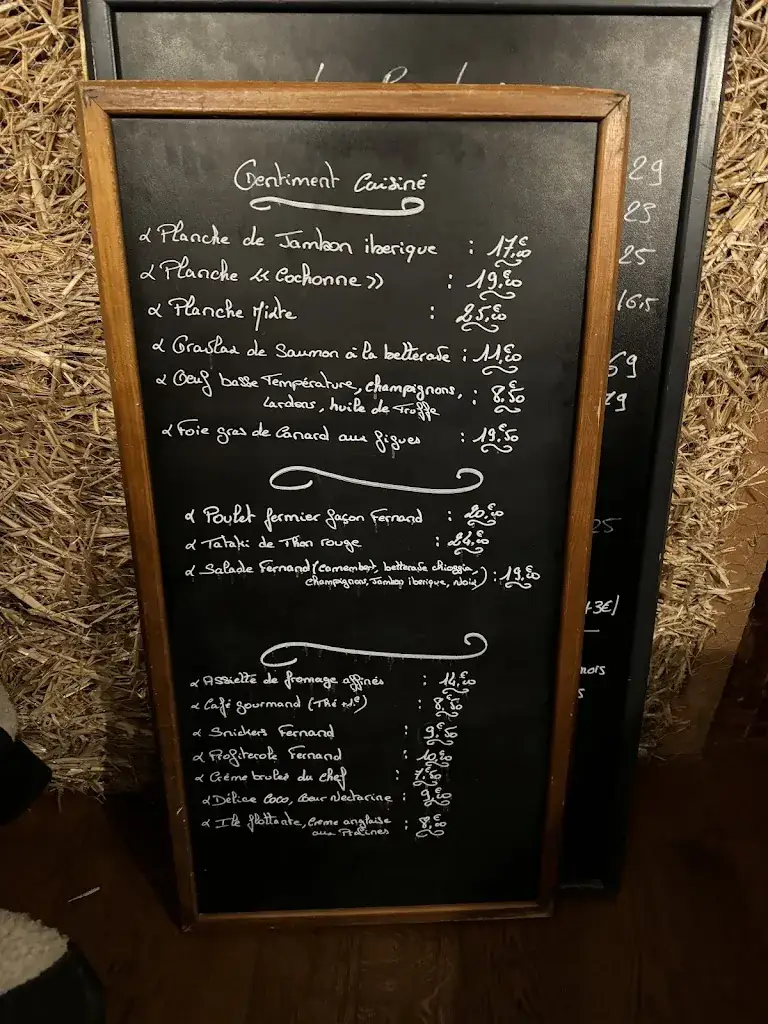 Gentiment Cuisiné
Planche de Jambon iberique : 17,€00
Planche « Cochonne » : 19,€00
Planche Mixte : 25,€00
Gravlax de Saumon à la betterave : 11,€00
Oeuf basse Température, champignons, : 8,€50
Lardons, huile de Truffe
Foie gras de Canard aux figues : 19,€50
Poulet fermier façon Fernand : 20,€00
Tataki de Thon rouge : 24,€00
Salade Fernand (Camembert, betterave chioggia, : 19,€00
champignons, Jambon iberique, Noix)
Assiette de fromage affinés : 14,€00
Café gourmand (Thé +1€) : 8,€50
Snickers Fernand : 9,€50
Profiterole Fernand : 10,€00
Crème brulée du chef : 7,€50
Délice Coco, Coeur Nectarine : 9,€00
Ile flottante, Creme anglaise : 8,€00
aux Pralines
29
23
25
16,5
69
79
25
+3€)
nois
s